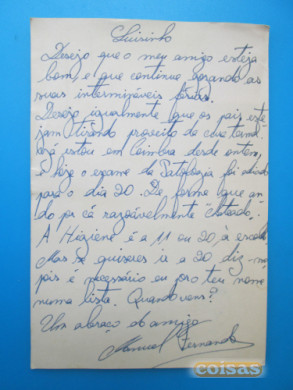 Luisinho
Desejo que o meu amigo esteja
bem, e que continue gozando as
suas intermináveis férias.
Desejo igualmente que os pais este
jam tirando proveito de
estou em Coimbra desde ontem,
e hoje o exame de Patologia foi
para o dia 20. De forma que an
do por cá razoàvelmente "chateado".
A Higiene é a 11 ou 20, à escolha
Mas se quiseres ir a 20 diz-me
pois é necessário eu pôr teu nome
numa lista. Quando vens?
Um abraço do amigo
Manuel Fernando
coisas